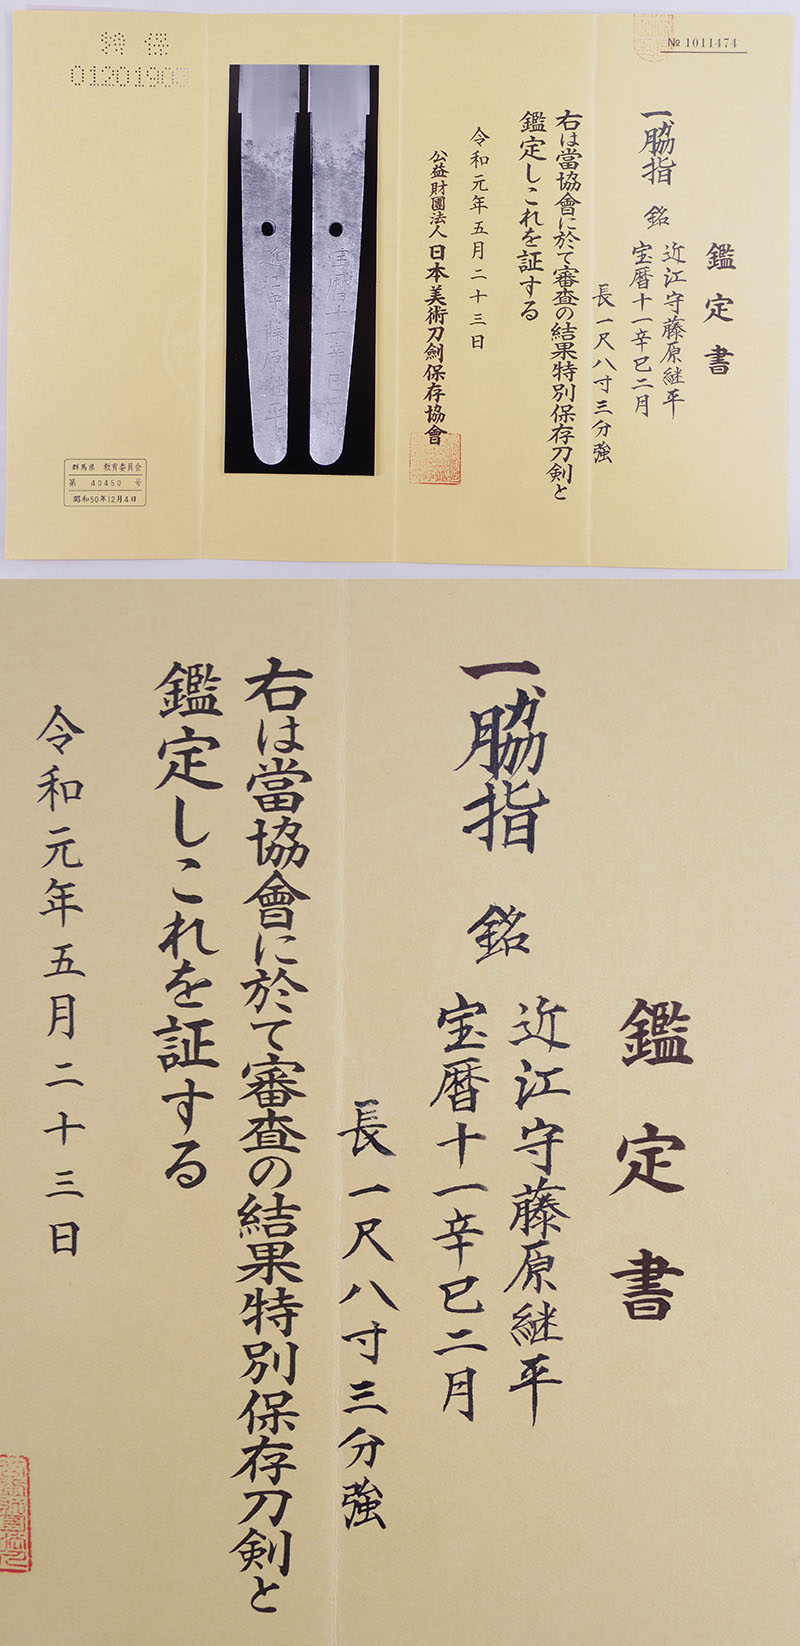 № 1011474
鑑定書
一脇指 銘 近江守藤原継平
宝暦十一辛巳二月
長一尺八寸三分強
右は當協會に於て審査の結果特別保存刀剣と
鑑定しこれを証する
令和元年五月二十三日
公益財團法人 日本美術刀劍保存協會
宝暦十一辛巳二月
近江守藤原継平
特保
01201903
群馬県 教育委員会
第 40450 号
昭和50年12月4日
鑑定書
一脇指 銘 近江守藤原継平
宝暦十一辛巳二月
長一尺八寸三分強
右は當協會に於て審査の結果特別保存刀剣と
鑑定しこれを証する
令和元年五月二十三日